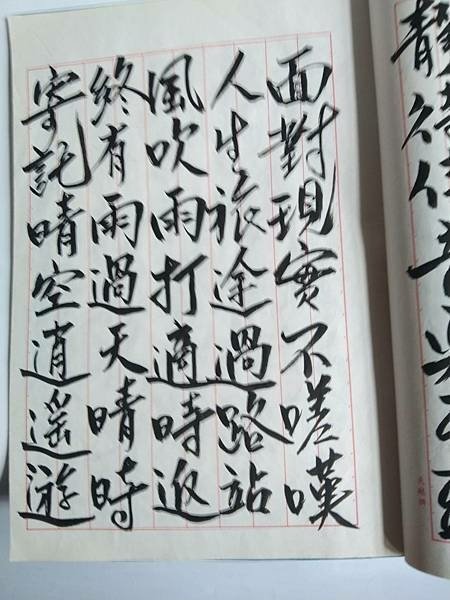 面對現實不嗟嘆
人生旅途過路站
風吹雨打適時返
終有雨過天晴時
寄託晴空逍遥游